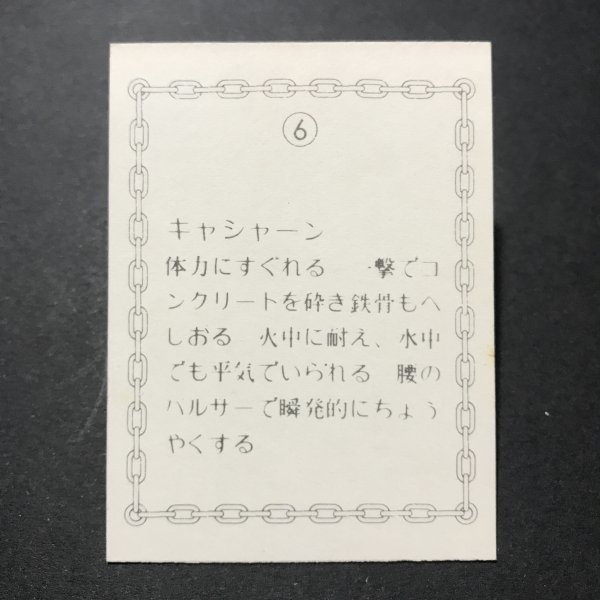 6
キャシャーン
体力にすぐれる　一撃でコ
ンクリートを砕き鉄骨もへ
しおる　火中に耐え、水中
でも平気でいられる　腰の
パルサーで瞬発的にちょう
やくする